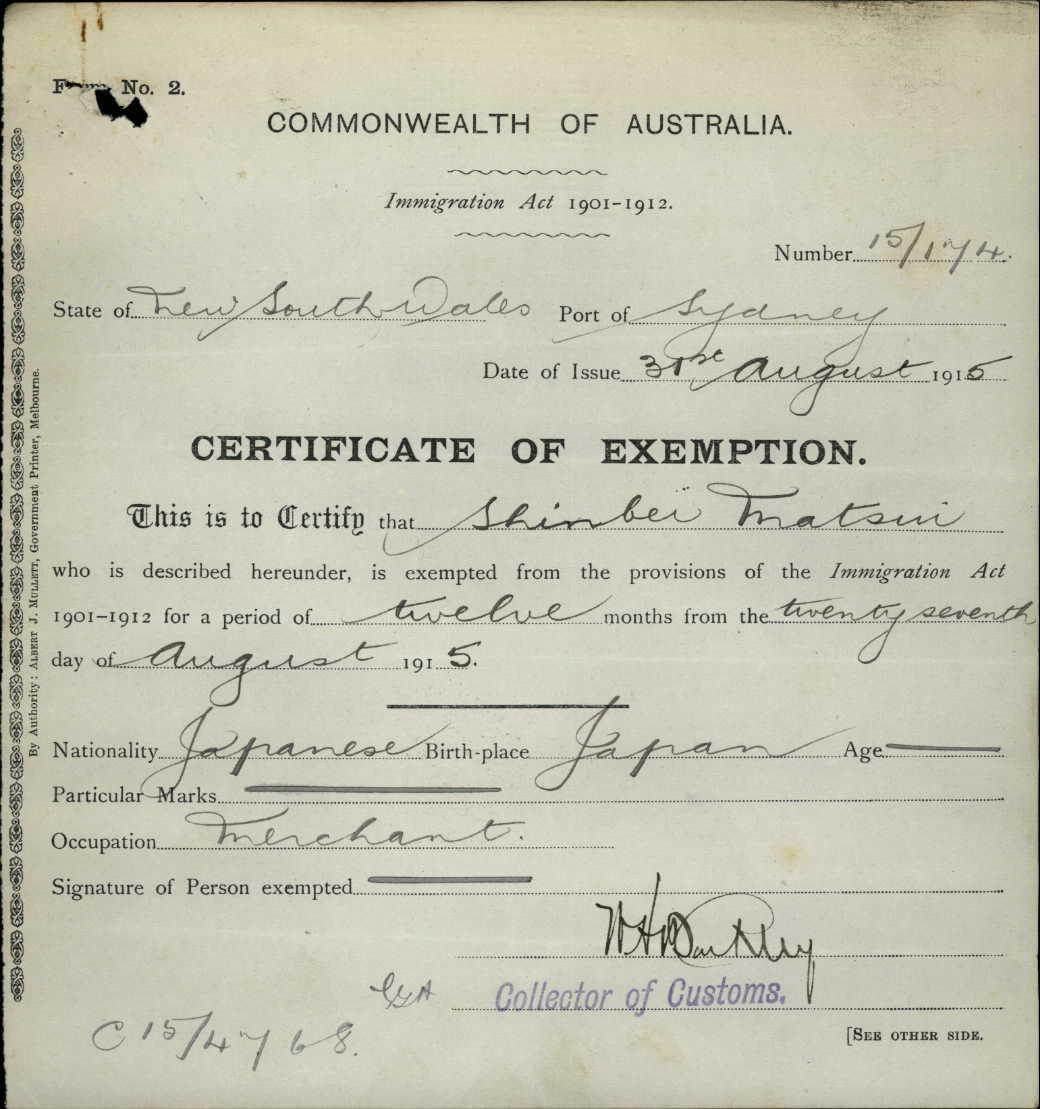 Form No. 2.
COMMONWEALTH OF AUSTRALIA.
Immigration Act 1901-1912.
Number 15/174.
State of New South Wales Port of Sydney
Date of Issue 31st August 1915
CERTIFICATE OF EXEMPTION.
This is to Certify that Shinbei Matsui
who is described hereunder, is exempted from the provisions of the Immigration Act
1901-1912 for a period of twelve months from the twenty seventh
day of August 1915.
Nationality Japanese Birth-place Japan Age
Particular Marks
Occupation Merchant.
Signature of Person exempted
Collector of Customs.
C 15/4768.
[SEE OTHER SIDE.
By Authority: ALBERT J. MULLETT, Government Printer, Melbourne.